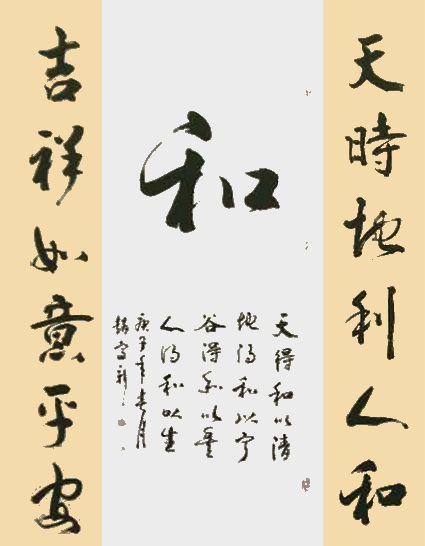 天時地利人和
和
天得和以清
地得和以宁
谷得和以盈
人得和以生
庚子年春月
吉祥如意平安